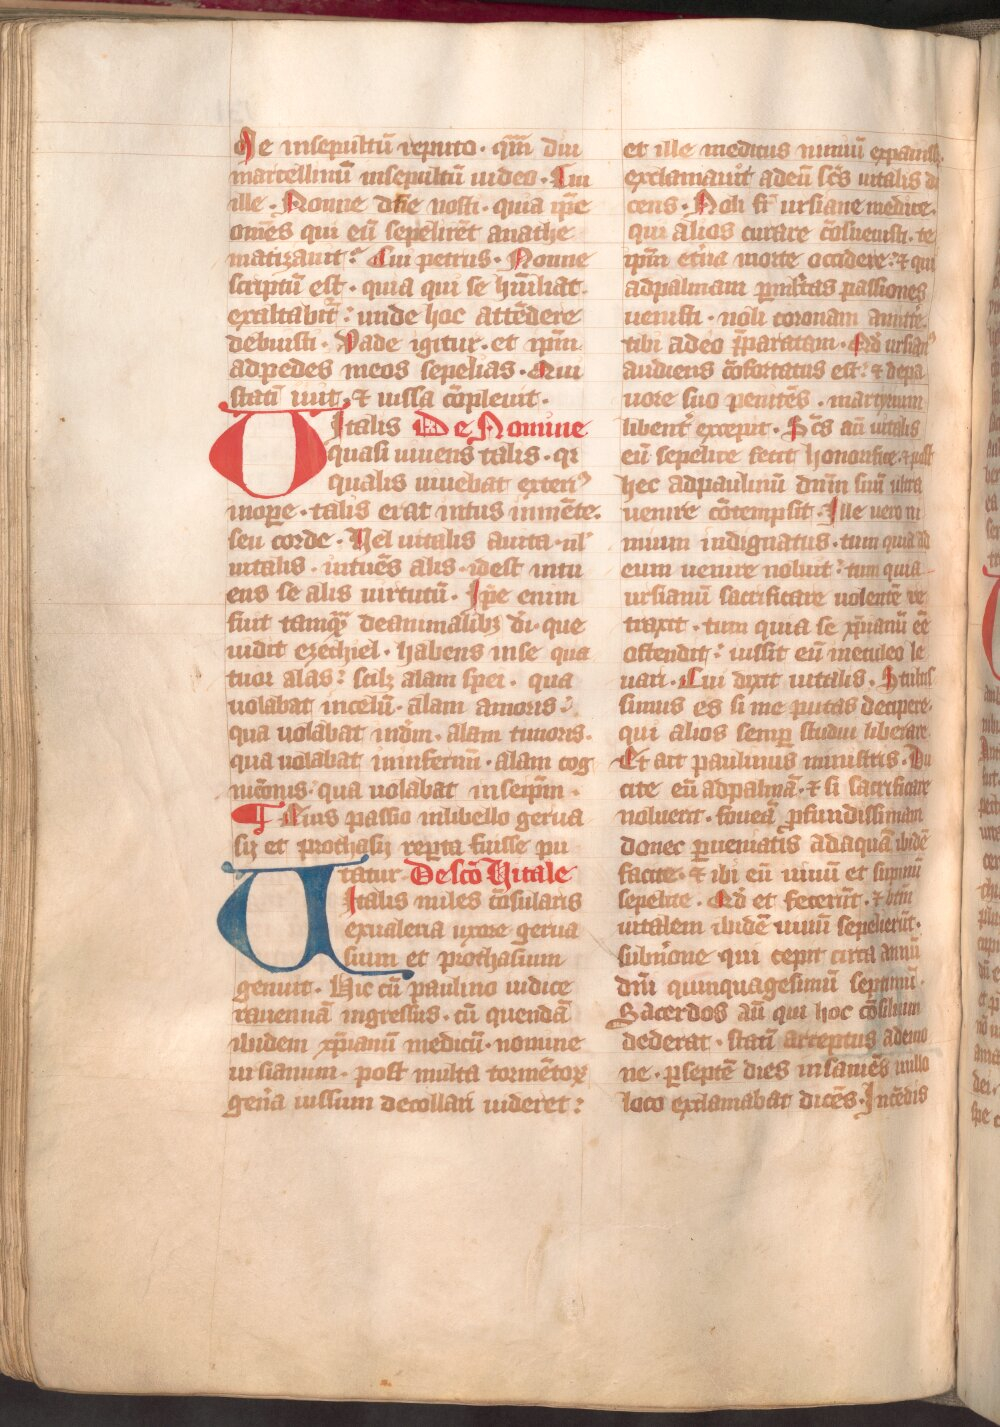 Me insepultū reputo · qm̄ diu
marcellinū insepultū uideo · Cui
ille · Nonne dn̄e nosti · quia ip̄e
omēs qui eū sepelirēt anathe
matizauit? Cui petrus · Nonne
scriptū est · quia qui se hūiliat
exaltabit̄ : unde hoc attēdere
debuisti · Vade igitur · et ip̄m
ad pedes meos sepelias · Qui
statī iuit · & iussa cōpleuit ·
Vitalis De Nomine
quasi uiuens talis · qr
qualis uiuebat exteri⁹
in ope · talis erat intus in mēte ·
seu corde · Vel uitalis dicta · ul'
uitalis · intuēs alis · idest intu
ens se alis uirtutū · Ip̄e enim
fuit tamq̄ de animalibꝫ dī · que
uidit ezechiel · habens in se qua
tuor alas : scilꝫ alam spei · qua
uolabat in celū · alam amoris ·
qua uolabat in dm̄ · alam timoris ·
qua uolabat in infernū · alam cog
nicōnis · qua uolabat in seip̄m ·
¶ Eius passio in libello gerua
sij et prothasij reperta fuisse pu
tatur · De scō Vitale
Vitalis miles cōsularis
ex ualeria uxore gerua
sium et prothasium
genuit · Hic cū paulino iudice
rauennā ingressus · cū quendā
ibidem xp̄ianū medicū · nomine
ursianum · post multa tormētoꝝ
gen̄a iussum decollari uideret :
et ille medicus nimiū expauiss;
exclamauit ad eū scs̄ uitalis di
cens · Noli fr̄ ursiane medice ·
qui alios curare cōsueuisti · te
ip̄m et̄na morte occidere : & qui
ad palmam p multas passiones
uenisti · noli coronam amitte
tibi a deo p̄paratam · Qd̄ ursian⁹
audiens cōfortatus est : & de p̄a
uore suo penitēs · martyrium
libent̄ excepit · Scs̄ aū uitalis
eū sepelire fecit honorifice · & post
hec ad paulinū dn̄m suū ultra
uenire cōtempsit · Ille uero ni
mium indignatus · tum quia ad
eum uenire noluit : tum quia
ursianū sacrificare uolentē re
traxit · tum quia se xp̄ianū eē
ostendit : iussit eū in eculeo le
uari · Cui dixit uitalis · Stultis
simus es si me putas decipere ·
qui alios semp studui liberare ·
Et ait paulinus ministris · Du
cite eū ad palmā · & si sacrificare
noluerit · foueā p̱fundissimam
donec pueniatis ad aquā ibidē
facite · & ibi eū uiuū et supinū
sepelite · Qd̄ et fecerūt · & btm̄
uitalem ibidē uiuū sepelierūt ·
sub nerone qui cepit circa annū
dn̄i quinquagesimū septimū ·
Sacerdos aū qui hoc cōsilium
dederat · statī arreptus a demo
ne · p septē dies insaniēs in illo
loco exclamabat dicēs · Incēdis